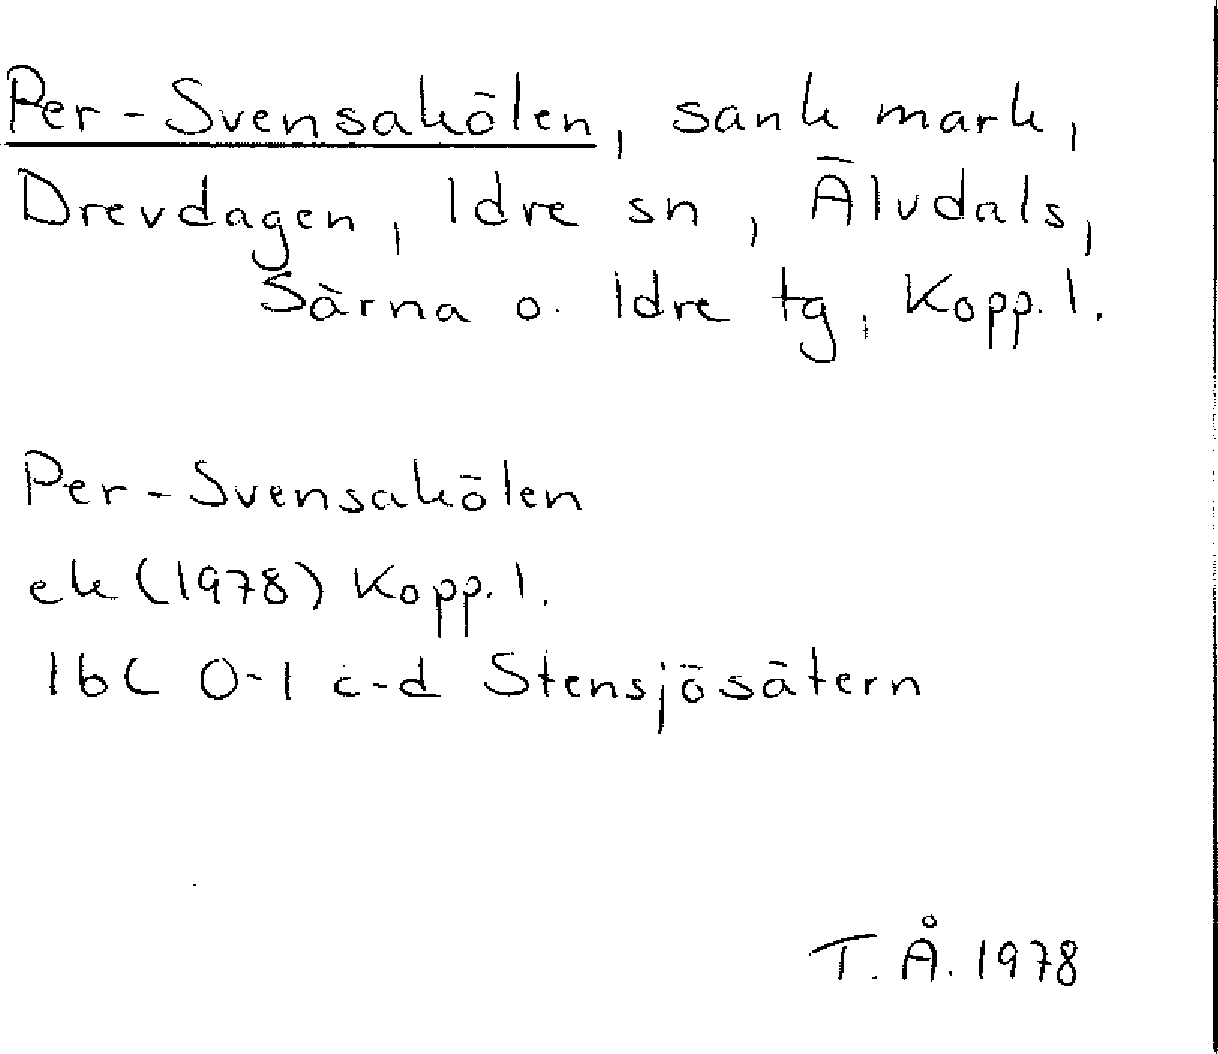 Per-Svensakölen, sank mark,
Drevdagen, Idre sn, Älvdals,
Särna o. Idre tg, Kopp. l.
Per-Svensakölen
ek (1978) Kopp. l.
16C 0-1 c-d Stensjösätern
T. Å. 1978